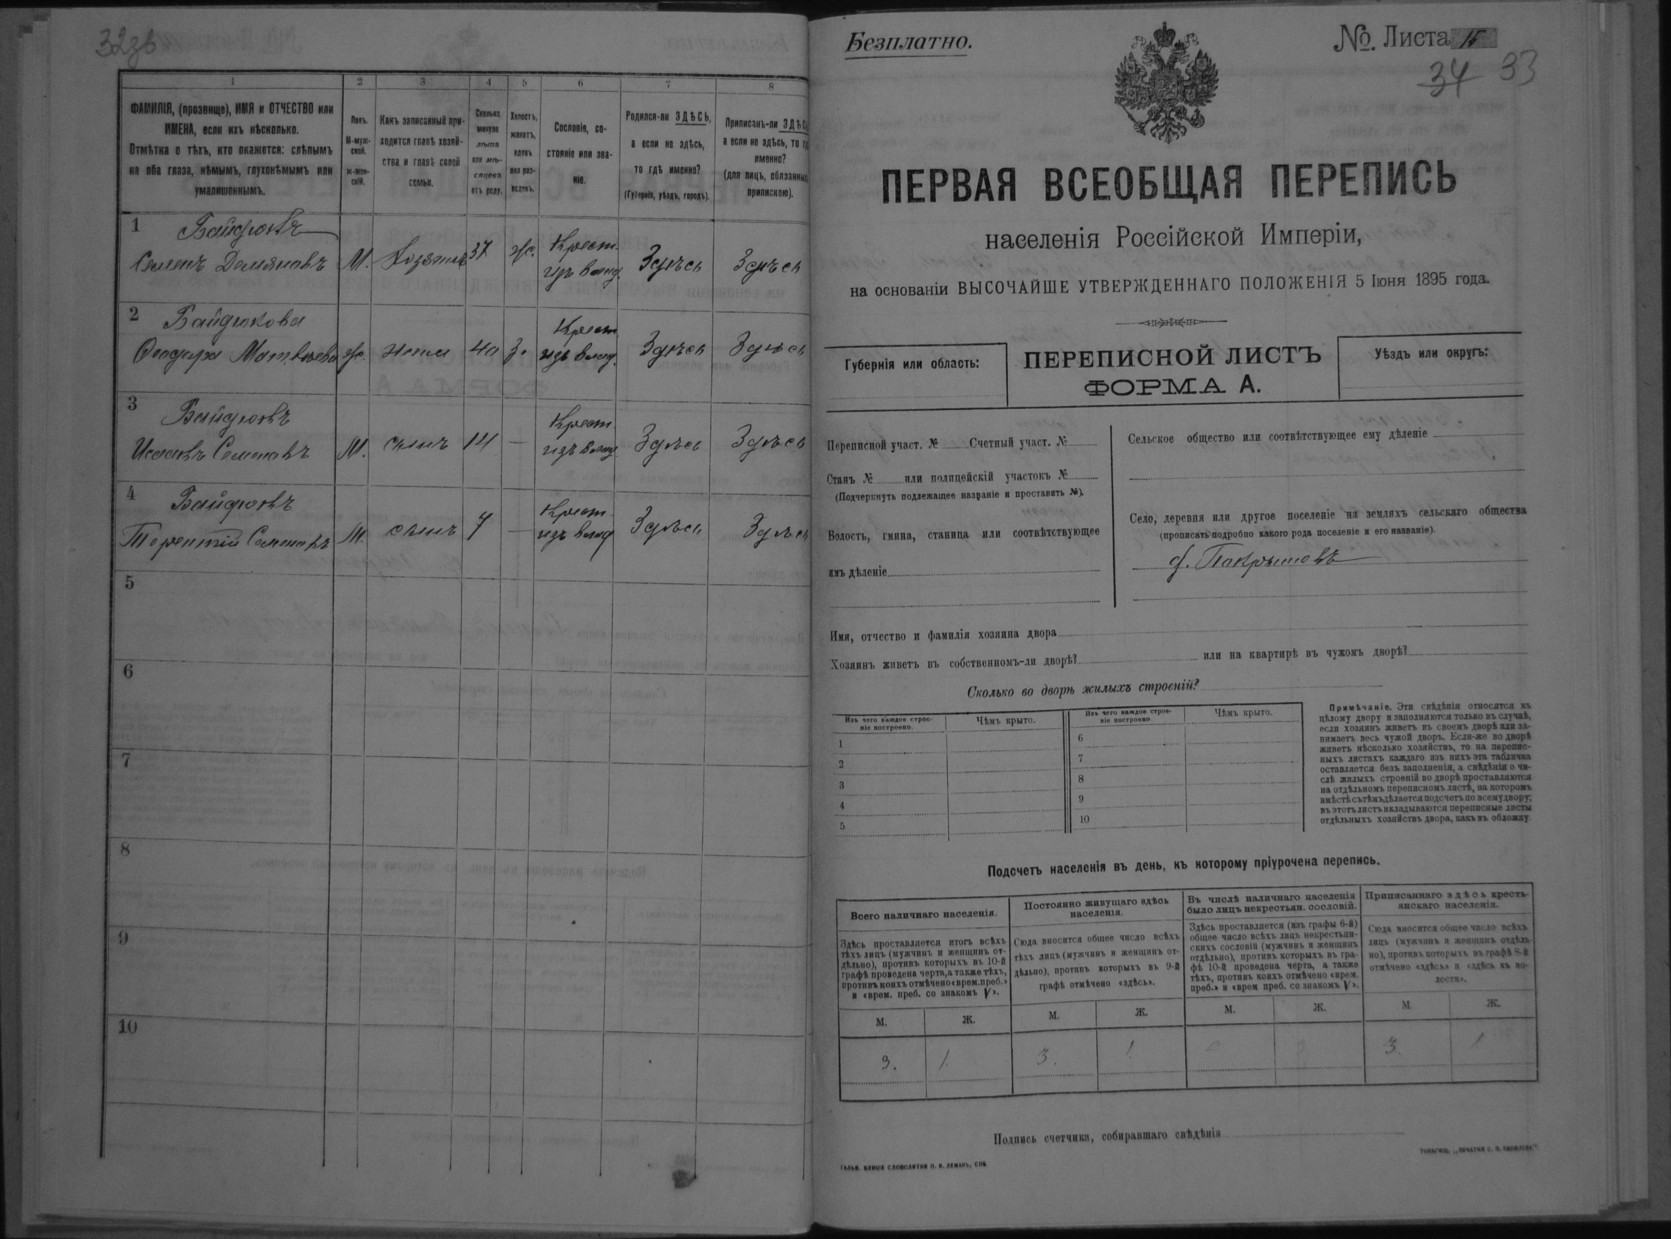 32зв
1 2 3 4 5 6 7 8
ФАМИЛІЯ, (прозвище), ИМЯ и ОТЧЕСТВО или
ИМЕНА, если ихъ нѣсколько.
Отмѣтка о тѣхъ, кто окажется: слѣпымъ
на оба глаза, нѣмымъ, глухонѣмымъ или
умалишеннымъ.
Полъ.
М-муж-
ской.
ж-жен-
скій.
Какъ записанный при-
ходится главѣ хозяй-
ства и главѣ своей
семьи.
Сколько
минуло
лѣтъ
или мѣ-
сяцевъ
отъ роду.
Холостъ,
женатъ,
вдовъ
или раз-
веденъ.
Сословіе, со-
стояніе или зва-
ніе.
Родился-ли ЗДѢСЬ,
а если не здѣсь,
то гдѣ именно?
(Губернія, уѣздъ, городъ).
Приписанъ-ли ЗДѢСЬ
а если не здѣсь, то гдѣ
именно?
(для лицъ, обязанныхъ
припискою).
1 Байдюковъ
Семенъ Демьяновъ М. Хозяинъ 37 ж. Крест. изъ влад. Здѣсь Здѣсь
2 Байдюкова
Матвѣева ж. жена 40 з. Крест. изъ влад. Здѣсь Здѣсь
3 Байдюковъ
Семеновъ М. сынъ 14 — Крест. изъ влад. Здѣсь Здѣсь
4 Байдюковъ
Терентій Семеновъ М. сынъ 7 — Крест. изъ влад. Здѣсь Здѣсь
5
6
7
8
9
10
Безплатно.
№. Листа 15
34 33
ПЕРВАЯ ВСЕОБЩАЯ ПЕРЕПИСЬ
населенія Россійской Имперіи,
на основаніи ВЫСОЧАЙШЕ УТВЕРЖДЕННАГО ПОЛОЖЕНІЯ 5 Іюня 1895 года.
Губернія или область:
ПЕРЕПИСНОЙ ЛИСТЪ
ФОРМА А.
Уѣздъ или округъ:
Переписной участ. № Счетный участ. №
Станъ № или полицейскій участокъ №
(Подчеркнуть подлежащее названіе и проставить №).
Волость, гмина, станица или соотвѣтствующее
имъ дѣленіе
Сельское общество или соотвѣтствующее ему дѣленіе
Село, деревня или другое поселеніе на земляхъ сельскаго общества
(прописать подробно какого рода поселеніе и его названіе)
Имя, отчество и фамилія хозяина двора
Хозяинъ живетъ въ собственномъ-ли дворѣ? или на квартирѣ въ чужомъ дворѣ?
Сколько во дворѣ жилыхъ строеній?
Изъ чего каждое строе-
ніе построено.
Чѣмъ крыто.
Изъ чего каждое строе-
ніе построено
Чѣмъ крыто.
1 6
2 7
3 8
4 9
5 10
Примѣчаніе. Эти свѣдѣнія относятся къ
цѣлому двору и заполняются только въ случаѣ,
если хозяинъ живетъ въ своемъ дворѣ или за-
нимаетъ весь чужой дворъ. Если-же во дворѣ
живетъ нѣсколько хозяйствъ, то на перепис-
ныхъ листахъ каждаго изъ нихъ эта табличка
оставляется безъ заполненія, а свѣдѣнія о чи-
слѣ жилыхъ строеній во дворѣ проставляются
на отдѣльномъ переписномъ листѣ, на которомъ
вмѣстѣ съ тѣмъ дѣлается подсчетъ по всему двору;
въ этотъ листъ вкладываются переписные листы
отдѣльныхъ хозяйствъ двора, какъ въ обложку.
Подсчетъ населенія въ день, къ которому пріурочена перепись.
Всего наличнаго населенія.
Постоянно живущаго здѣсь
населенія.
Въ числѣ наличнаго населенія
было лицъ некрестьян. сословій.
Приписаннаго здѣсь кресть-
янскаго населенія.
Здѣсь проставляется итогъ всѣхъ
тѣхъ лицъ (мужчинъ и женщинъ от-
дѣльно), противъ которыхъ въ 10-й
графѣ проведена черта, а также тѣхъ,
противъ коихъ отмѣчено «врем. преб.»
и «врем. преб. со знакомъ V».
Сюда вносится общее число всѣхъ
тѣхъ лицъ (мужчинъ и женщинъ от-
дѣльно), противъ которыхъ въ 9-й
графѣ отмѣчено «здѣсь».
Здѣсь проставляется (изъ графы 6-й)
общее число всѣхъ лицъ некрестьян-
скихъ сословій (мужчинъ и женщинъ
отдѣльно), противъ которыхъ въ гра-
фѣ 10-й проведена черта, а также
тѣхъ, противъ коихъ отмѣчено «врем.
преб.» и «врем преб. со знакомъ V».
Сюда вносится общее число всѣхъ
лицъ (мужчинъ и женщинъ отдѣль-
но), противъ которыхъ въ графѣ 8-й
отмѣчено «здѣсь» и «здѣсь къ во-
лости».
М. Ж. М. Ж. М. Ж. М. Ж.
3. 1. 3. 1. 3. 1
Подпись счетчика, собиравшаго свѣдѣнія